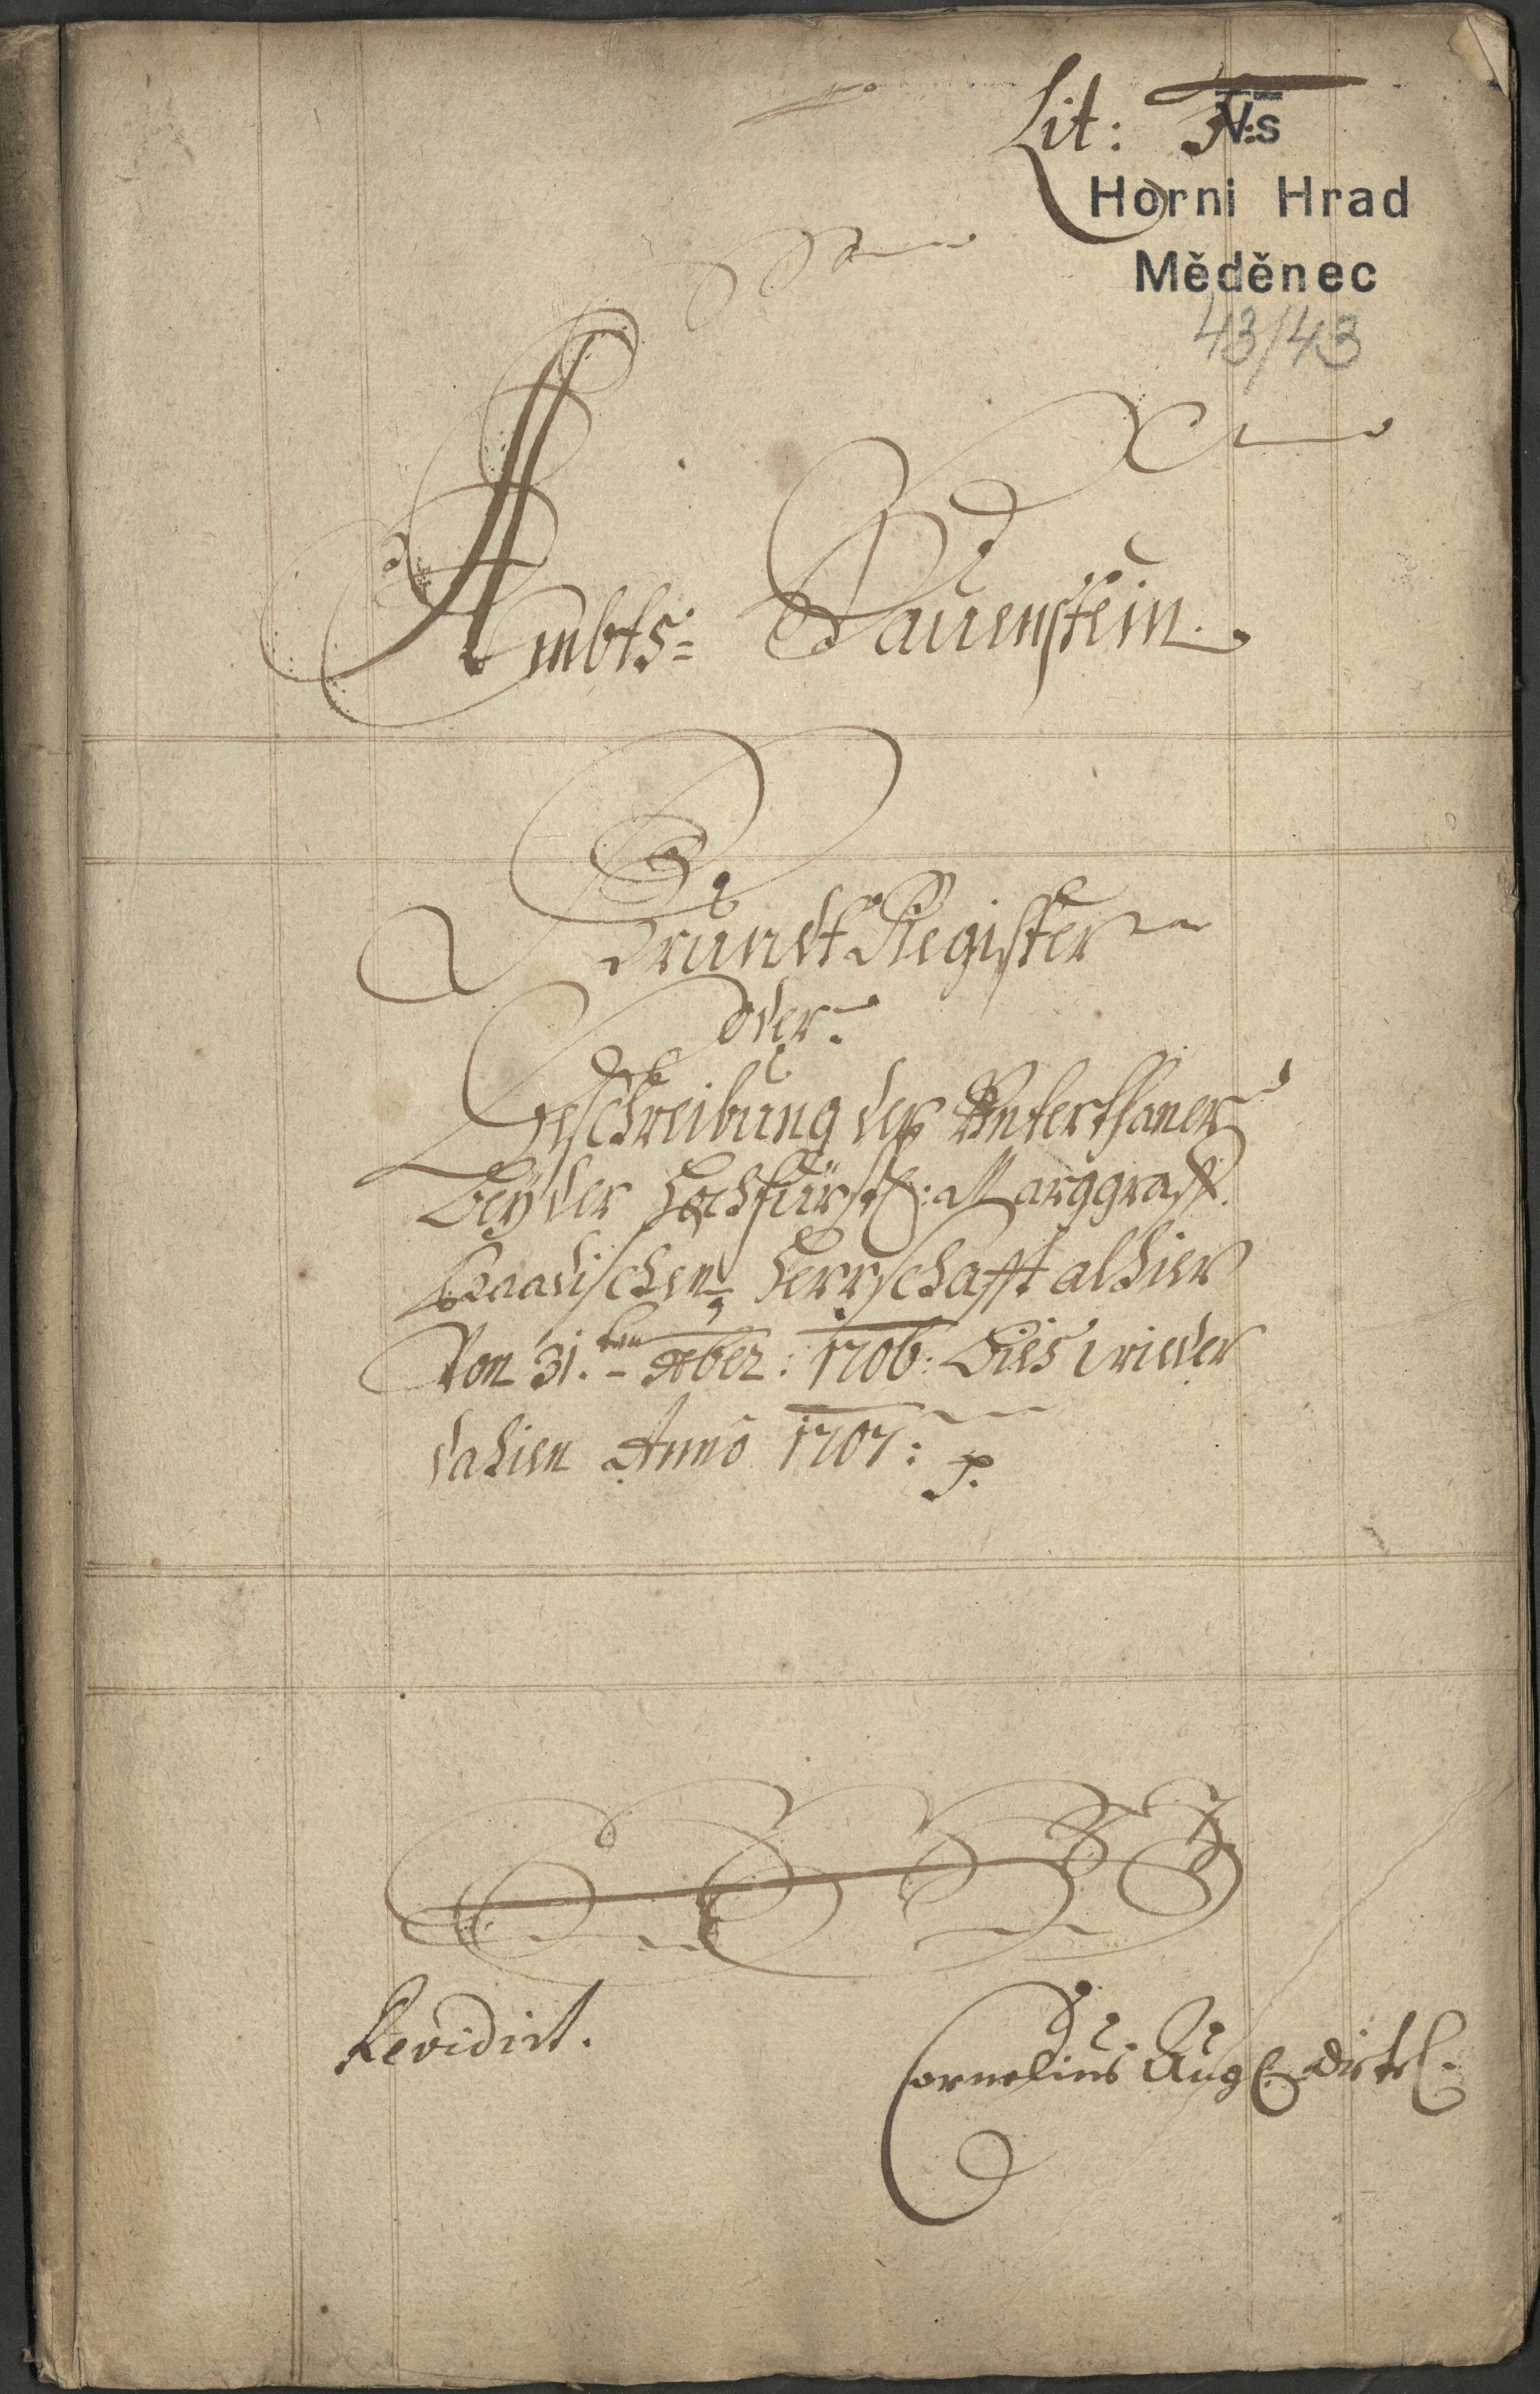 Lit:
Vs
Horni Hrad
Měděnec
43/43
Ambts= Hauenstein.
Grundt Register
Oder
Beschreibung der Unterthaner
Beÿ der Hochfürstl: Marggraff.
Baadischen Herrschafft alhier
Von 31.ten Xber: 1706: Bies wieder
dahien Anno 1707: p.
Revidirt.
Cornelius Aug